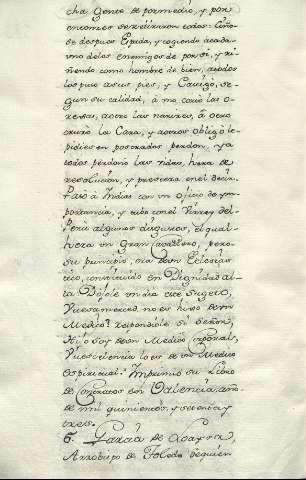 cha Gente de por medio, y por
entonces se retiraron todos: Cono-
se despues Epida, y cogiendo acada
uno delos enemigos de por si, y ri-
ñendo como hombre de bien, atodos
los puso asus pies, y Castigó, se-
gun su calidad, á no cortó las o-
rejas, aotro las narices, á otro
cruzó la Cara, y aotros obligó le
pidiesen postrados perdon, y a
todos perdonó las vidas, hera de
resolución, y presteza en el decir.
Pasó á Indias con un oficio de ym-
portancia, y tubo con el Virrey del
Perú algunos disgustos, el qual
hera un Gran Cavallero, pero
su principio, era de un Eclesias-
tico, constituido en Dignidad al-
ta. Dijole un dia este sugeto,
Vuesamerced, no es hijo de un
Medico? respondiole si Señor,
Hijo soy de un Medico Corporal,
y Vuexcelencia lo es de un Medico
espiritual: Imprimio su Libro
de Contratos en Valencia, año
de mil quinientos, y setenta y
tres.
6. García de Loaysa,
Arzobispo de Toledo de quien